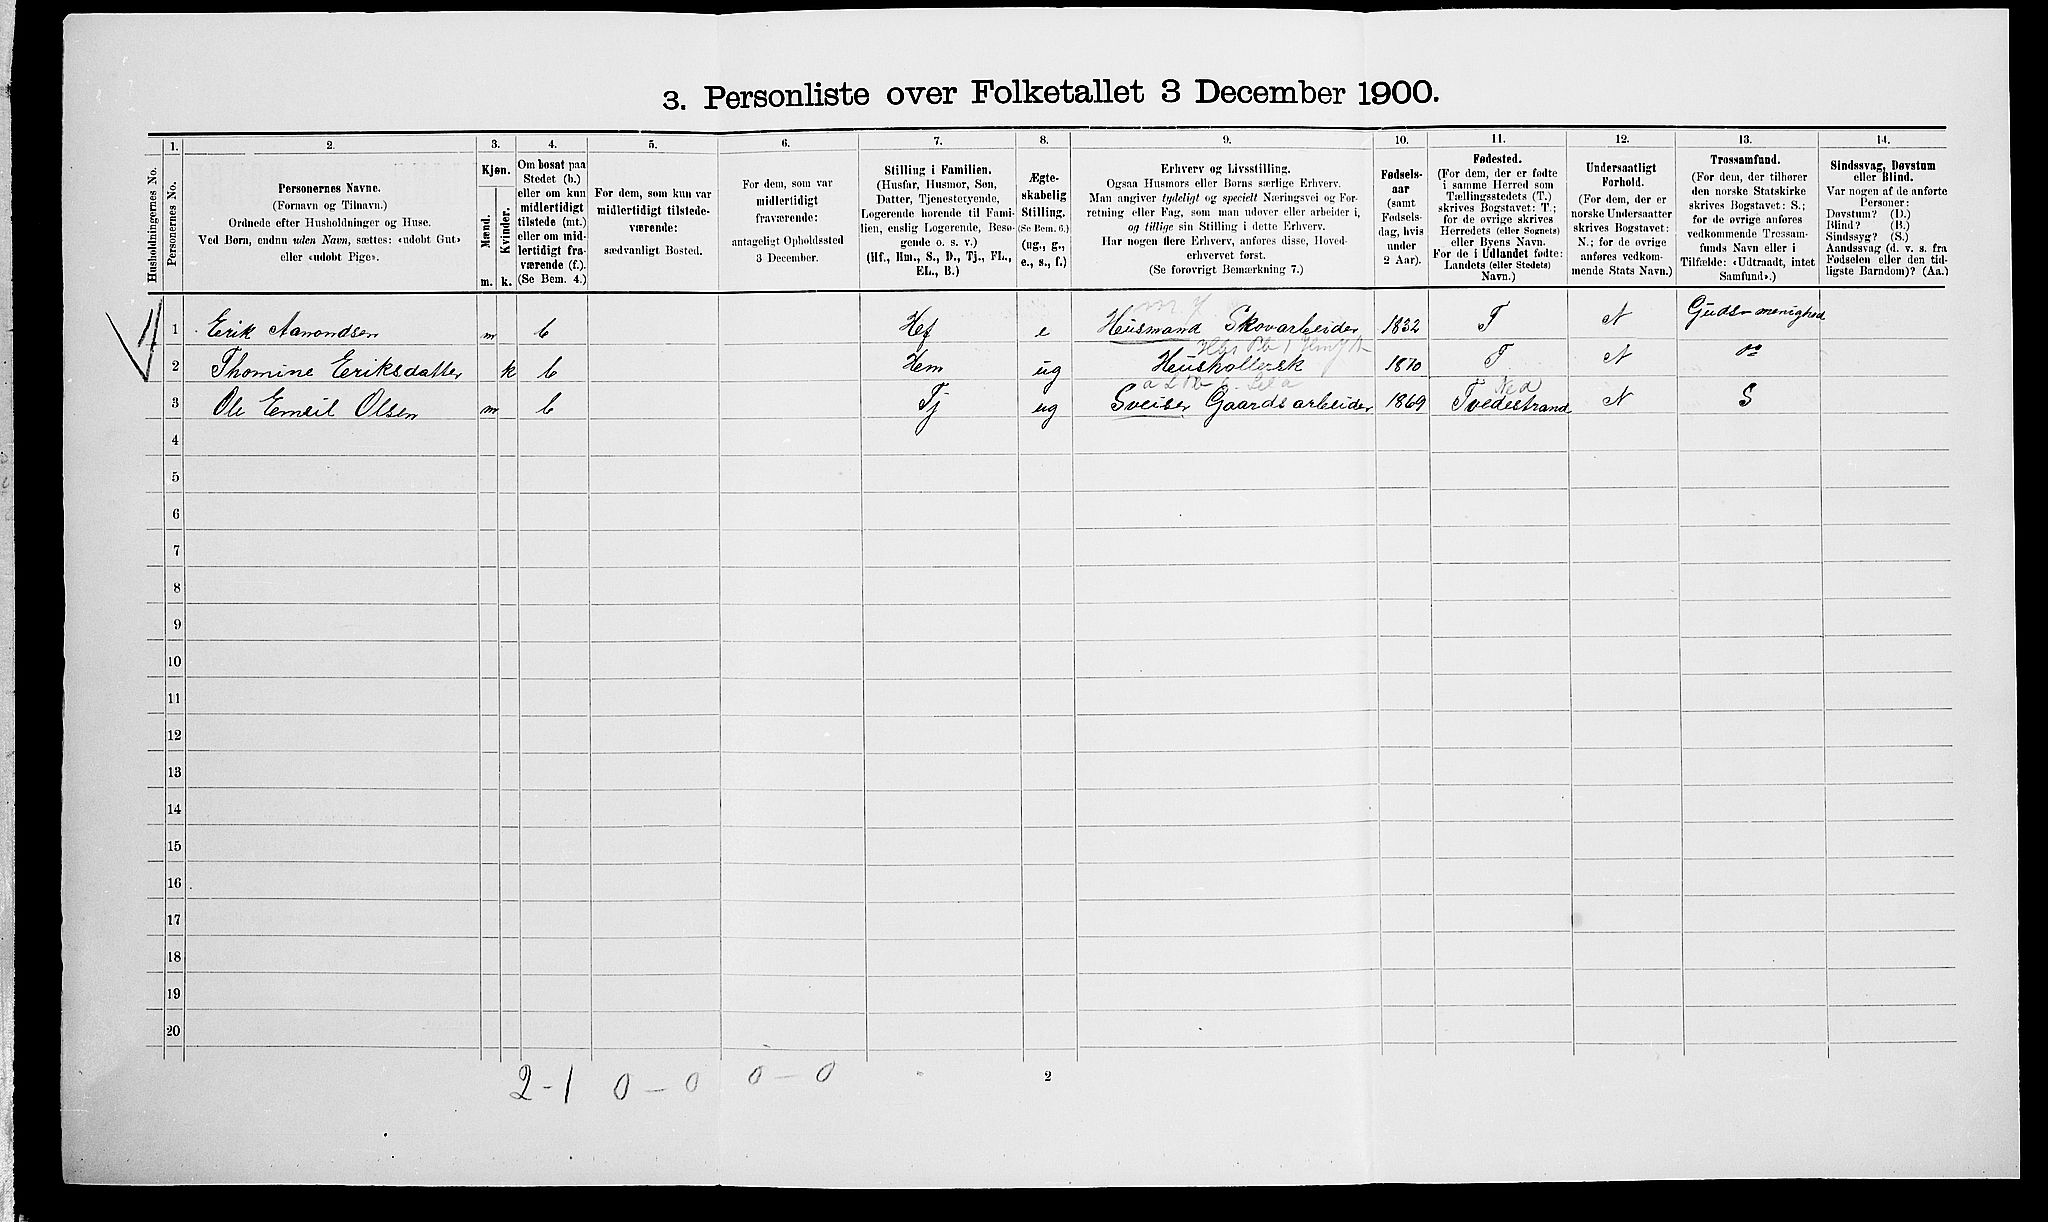 3. Personliste over Folketallet 3 December 1900.
Husholdningernes No.
1.
Personernes No.
2.
Personernes Navne.
(Fornavn og Tilnavn.)
Ordnede efter Husholdninger og Huse.
Ved Børn, endnu uden Navn, sættes: «udøbt Gut»
eller «udøbt Pige».
3.
Kjøn.
Mænd.
Kvinder.
m.
k.
4.
Om bosat paa
Stedet (b.)
eller om kun
midlertidigt
tilstede (mt.)
eller om mid-
lertidigt fra-
værende (f.).
(Se Bem. 4.)
5.
For dem, som kun var
midlertidigt tilstede-
værende:
sædvanligt Bosted.
6.
For dem, som var
midlertidigt
fraværende:
antageligt Opholdssted
3 December.
7.
Stilling i Familien.
(Husfar, Husmor, Søn,
Datter, Tjenestetyende,
Logerende hørende til Fami-
lien, enslig Logerende, Besø-
gende o. s. v.)
(Hf., Hm., S., D., Tj., FL.,
EL., B.)
8.
Ægte-
skabelig
Stilling.
(Se Bem. 6.)
(ug., g.,
e., s., f.)
9.
Erhverv og Livsstilling.
Ogsaa Husmors eller Børns særlige Erhverv.
Man angiver tydeligt og specielt Næringsvei og For-
retning eller Fag, som man udøver eller arbeider i,
og tillige sin Stilling i dette Erhverv.
Har nogen flere Erhverv, anføres disse, Hoved-
erhvervet først.
(Se forøvrigt Bemærkning 7.)
10.
Fødsels-
aar
(samt
Fødsels-
dag, hvis
under
2 Aar).
11.
Fødested.
(For dem, der er fødte
i samme Herred som
Tællingsstedets (T.)
skrives Bogstavet: T.;
for de øvrige skrives
Herredets (eller Sognets)
eller Byens Navn.
For de i Udlandet fødte:
Landets (eller Stedets)
Navn.)
12.
Undersaatligt
Forhold.
(For dem, der er
norske Undersaatter
skrives Bogstavet:
N.; for de øvrige
anføres vedkom-
mende Stats Navn.)
13.
Trossamfund.
(For dem, der tilhører
den norske Statskirke
skrives Bogstavet: S.;
for de øvrige anføres
vedkommende Trossam-
funds Navn eller i
Tilfælde: «Udtraadt, intet
Samfund».)
14.
Sindssvag, Døvstum
eller Blind.
Var nogen af de anførte
Personer:
Døvstum? (D.)
Blind? (B.)
Sindssyg? (S.)
Aandssvag (d. v. s. fra
Fødselen eller den tid-
ligste Barndom)? (Aa.)
1 Erik Aanondsen m b Hf e Husmand Skovarbeider 1832 T N Guds-menighed
2 Thomine Eriksdatter k b Hm ug Husholdersk 1870 T N do
3 Ole Emeil Olsen m b Tj ug Sveiser Gaardsarbeider 1869 Tvedestrand N S
4
5
6
7
8
9
10
11
12
13
14
15
16
17
18
19
20
2-1 0-0 0-0 2